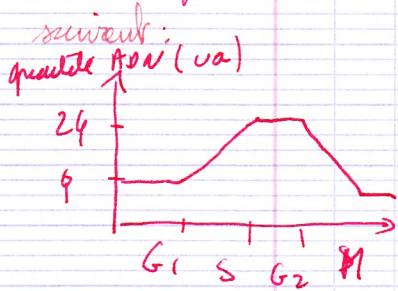 suivant :
quantité ADN (ua)
2q
q
G1 S G2 M